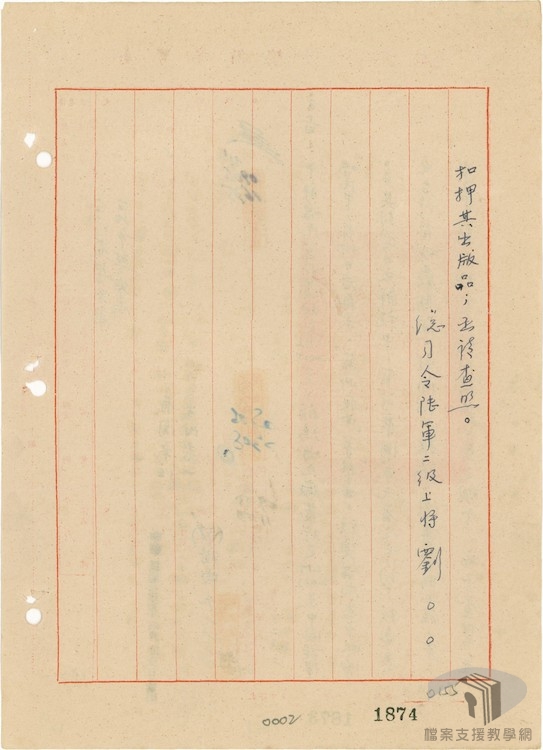 扣押其出版品;函請查照。
總司令陸軍二級上將 劉○○
0155
0002
1874
檔案支援教學網